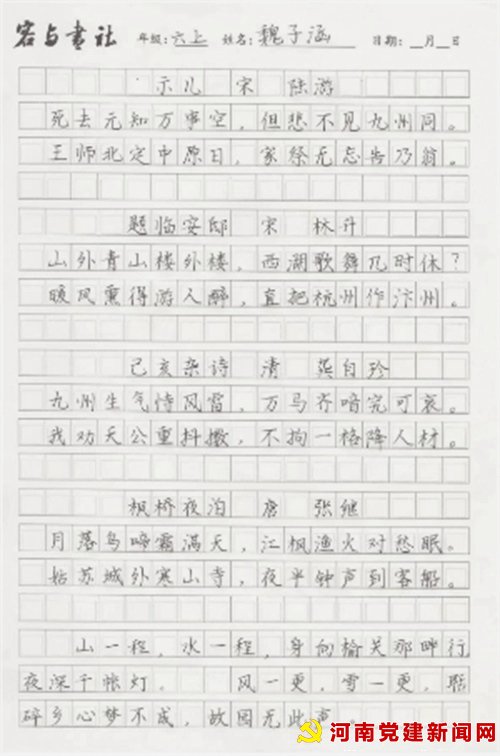 容与書社 年级:六上 姓名:魏子涵 日期:__月__日
示儿 宋 陆游
死去元知万事空，但悲不见九州同。
王师北定中原日，家祭无忘告乃翁。
题临安邸 宋 林升
山外青山楼外楼，西湖歌舞几时休？
暖风熏得游人醉，直把杭州作汴州。
己亥杂诗 清 龚自珍
九州生气恃风雷，万马齐喑究可哀。
我劝天公重抖擞，不拘一格降人材。
枫桥夜泊 唐 张继
月落乌啼霜满天，江枫渔火对愁眠。
姑苏城外寒山寺，夜半钟声到客船。
山一程，水一程，身向榆关那畔行
夜深千帐灯。 风一更，雪一更，聒
碎乡心梦不成，故园无此声。
河南党建新闻网